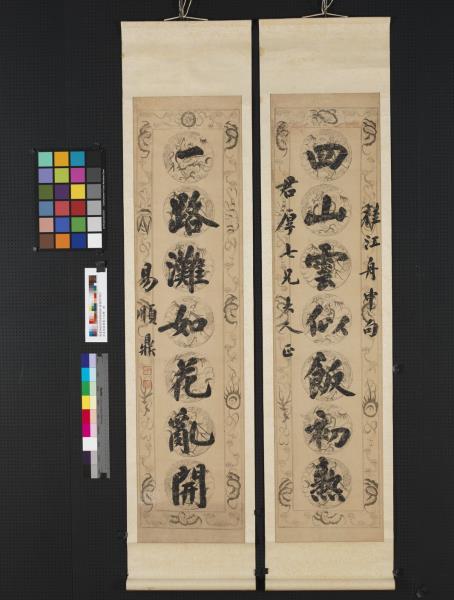 四山雲似飯初熟
江舟中句
君厚七兄大人正
一路灘如花亂開
易順鼎